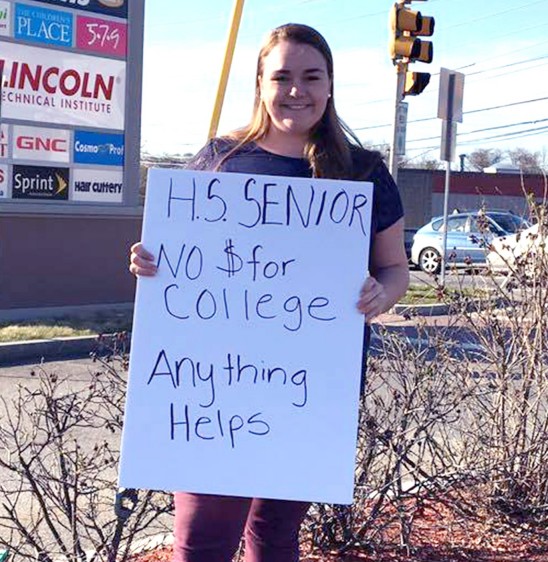 THE CHILDREN'S
PLACE
5·7·9
LINCOLN
TECHNICAL INSTITUTE
GNC
CosmoProf
Sprint
HAIR CUTTERY
H.S. SENIOR
NO $ for
College
Anything
Helps